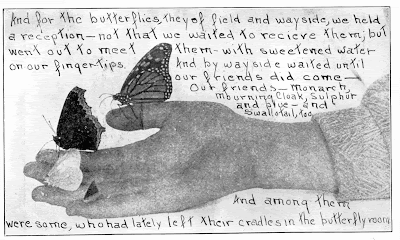 And for the butterflies, they of field and wayside, we held
a reception — not that we waited to recieve them; but
went out to meet them — with sweetened water
on our fingertips. And by wayside waited until
our friends did come —
Our friends — monarch,
mourning Cloak, Sulphur
and blue — and
Swallotail, too.
And among them
were some, who had lately left their cradles in the butterfly room